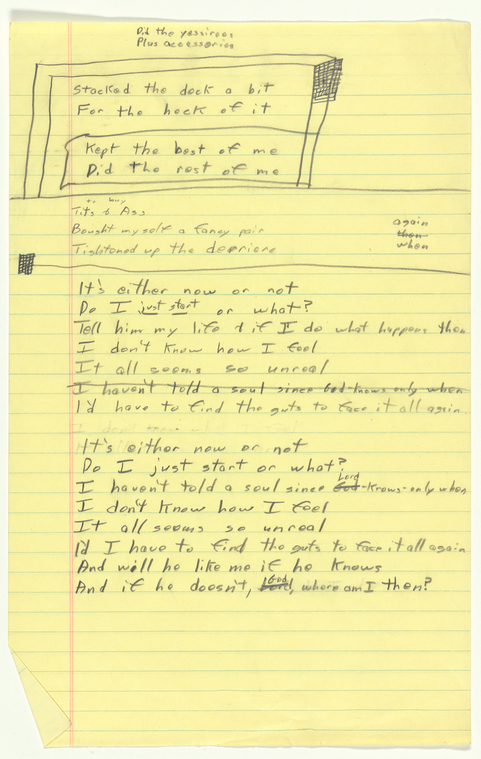 Did the
Plus accessories
Stacked the deck a bit
For the heck of it
Kept the best of me
Did the rest of me
to buy
Tits & Ass
Bought myself a fancy pair
Tightened up the derriere
again
then
when
It's either now or not
Do I just start or what?
Tell him my life & if I do what happens then
I don't know how I feel
It all seems so unreal
I haven't told a soul since God-knows only when
I'd have to find the guts to face it all again
It's either now or not
Do I just start or what?
Lord
I haven't told a soul since God-knows-only when
I don't know how I feel
It all seems so unreal
I'd I have to find the guts to face it all again
And will he like me if he knows
God
And if he doesn't, Lord, where am I then?